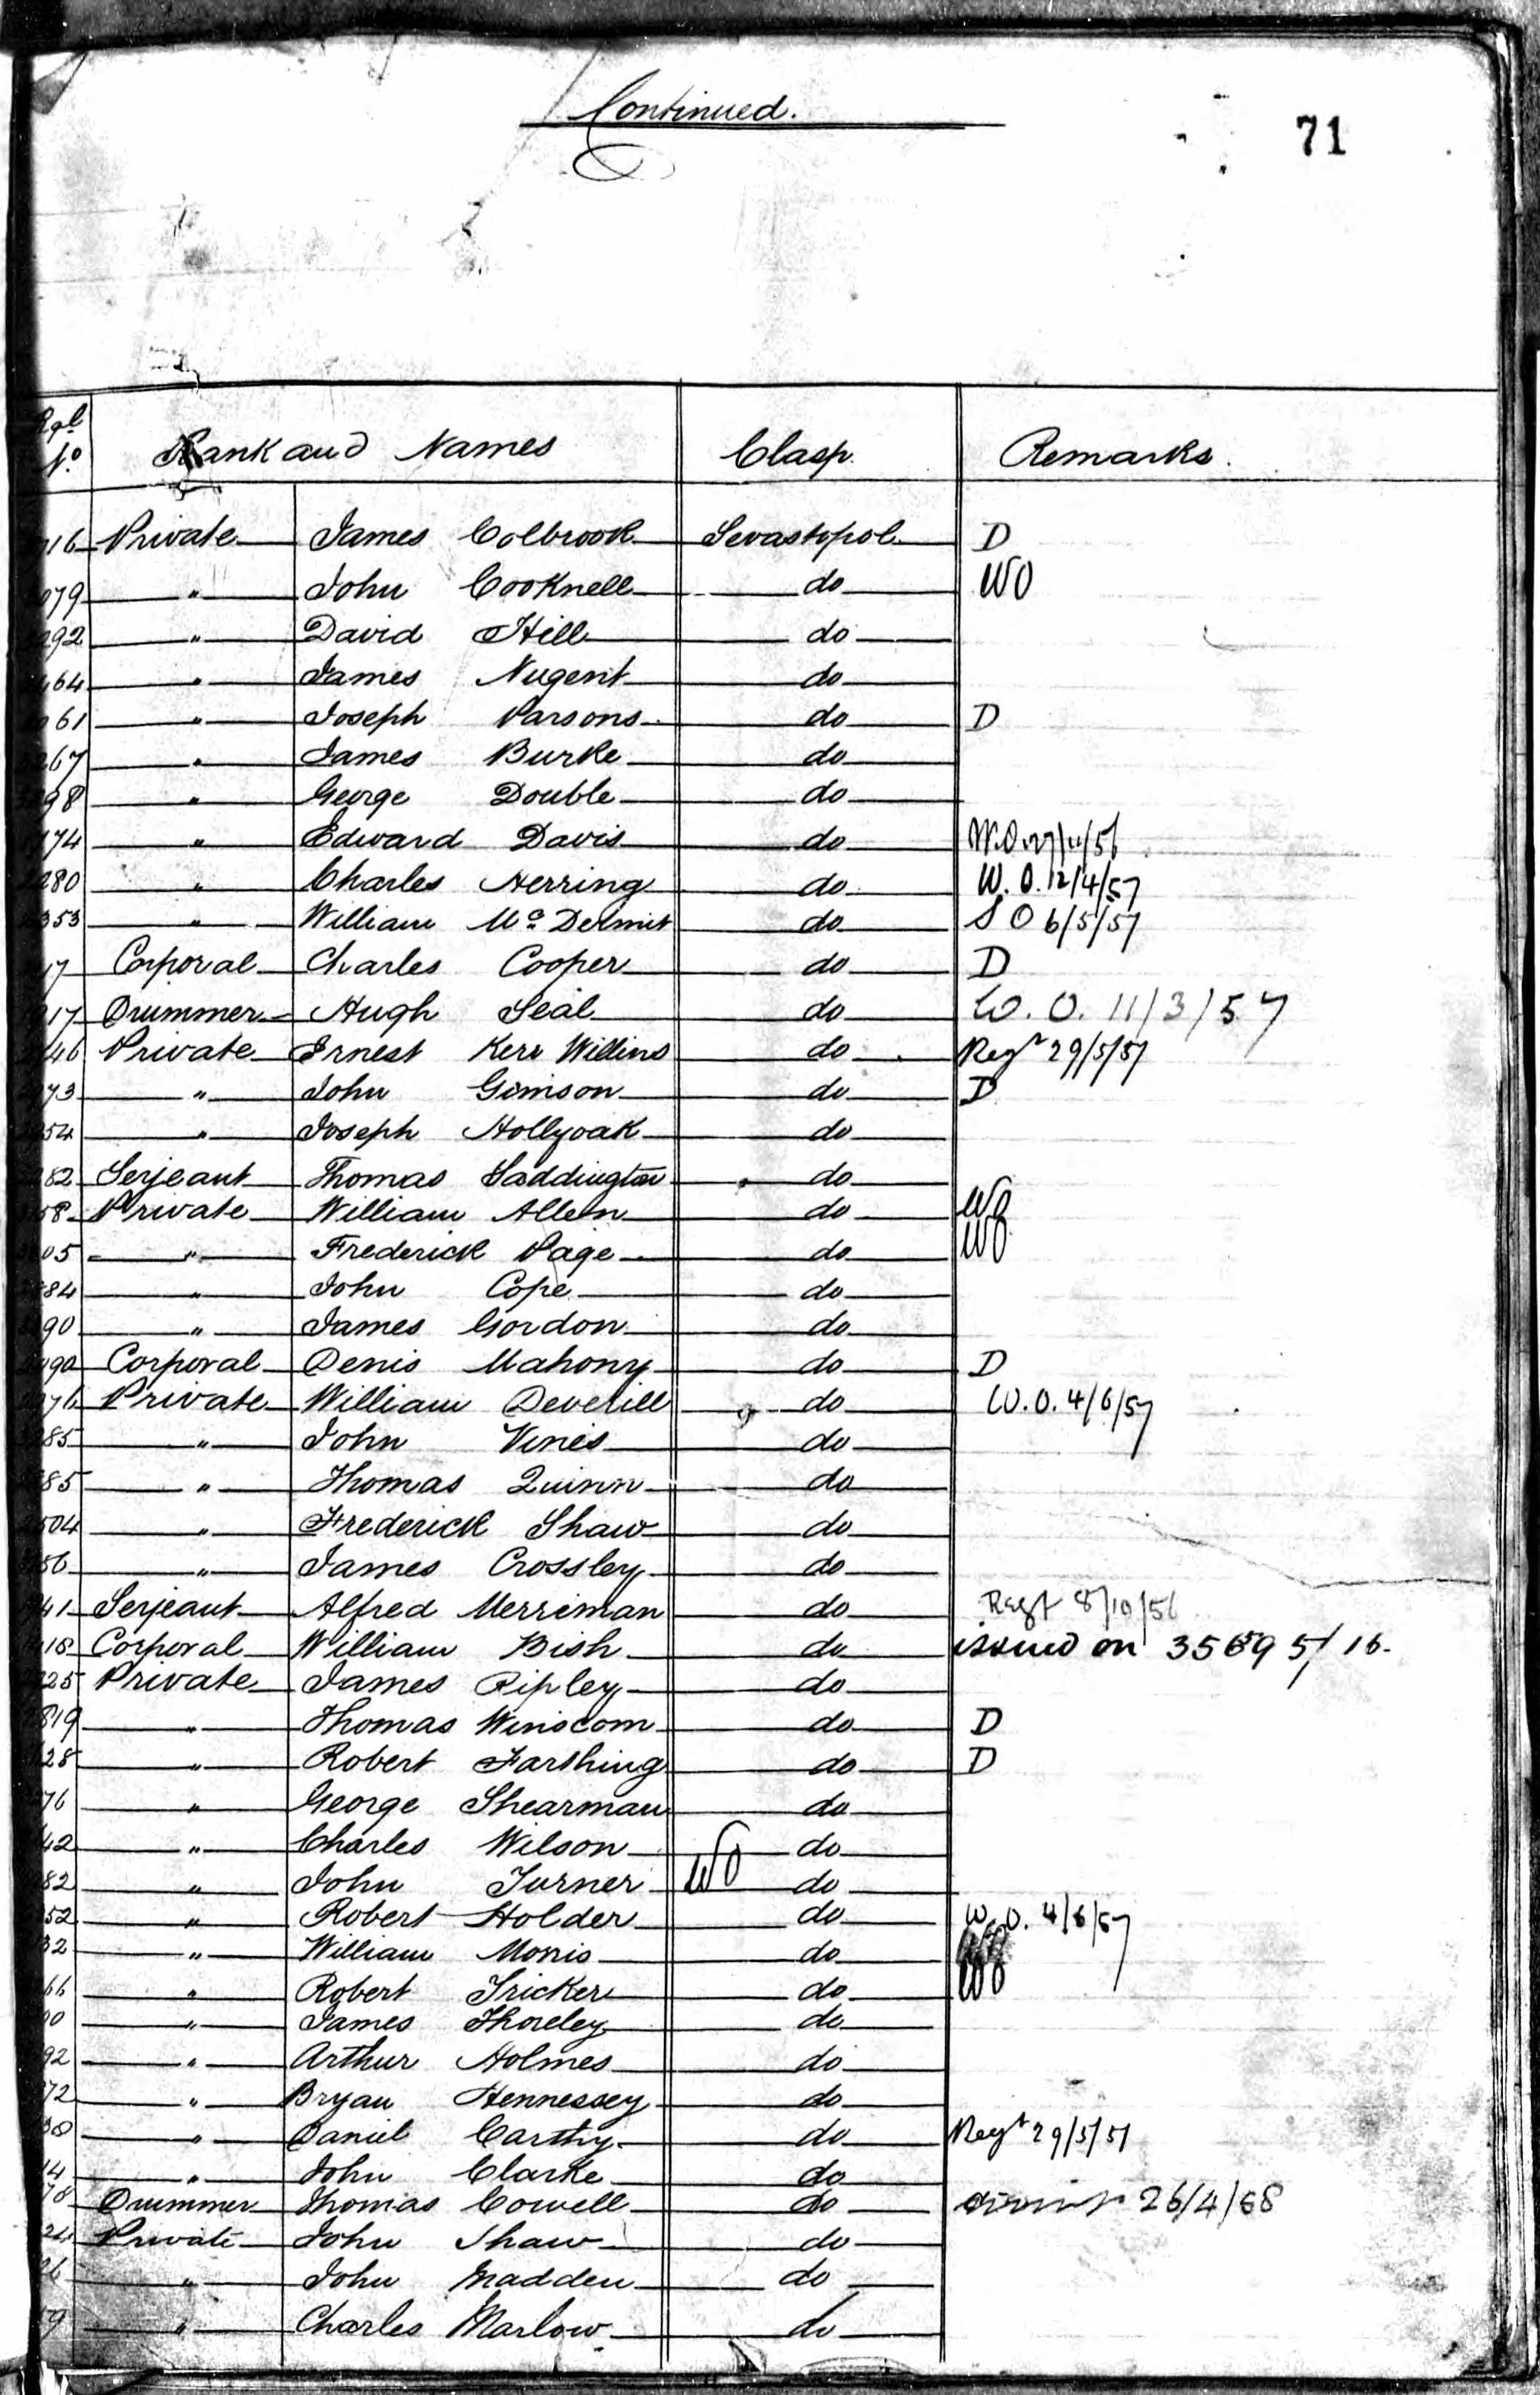 Continued.
71
Rgl No. Rank and Names Clasp. Remarks.
16 Private James Colbrook Sevastopol D
079 " John Cooknell do WO
292 " David Hill do
464 " James Nugent do
061 " Joseph Parsons do D
267 " James Burke do
98 " George Double do
174 " Edward Davis do W.O. /11/56
280 " Charles Herring do W.O. 12/4/57
353 " William Mc Dermit do S O 6/5/57
17 Corporal Charles Cooper do D
17 Drummer Hugh Seal do W.O. 11/3/57
46 Private Ernest Kerr Willins do Regt 29/5/57
73 " John Gimson do D
54 " Joseph Hollyoak do
82 Serjeant Thomas Saddington do
58 Private William Allen do WO
05 " Frederick Page do WO
84 " John Cope do
90 " James Gordon do
90 Corporal Denis Mahony do D
76 Private William Deverill do W.O. 4/6/57
85 " John Vines do
85 " Thomas Quinn do
504 " Frederick Shaw do
56 " James Crossley do
41 Serjeant Alfred Merriman do Regt 8/10/56
18 Corporal William Bish do issued on 5/16.
25 Private James Ripley do
819 " Thomas Winscom do D
28 " Robert Farthing do D
76 " George Shearman do
42 " Charles Wilson do
82 " John Turner WO do
52 " Robert Holder do W.O. 4/6/57
32 " William Morris do
66 " Robert Tricker do WO
00 " James Thoreley do
92 " Arthur Holmes do
72 " Bryan Hennessey do
38 " Daniel Carthy do Regt 29/5/57
14 " John Clarke do
78 Drummer Thomas Cowell do 26/4/58
24 Private John Shaw do
26 " John Madden do
59 " Charles Marlow do